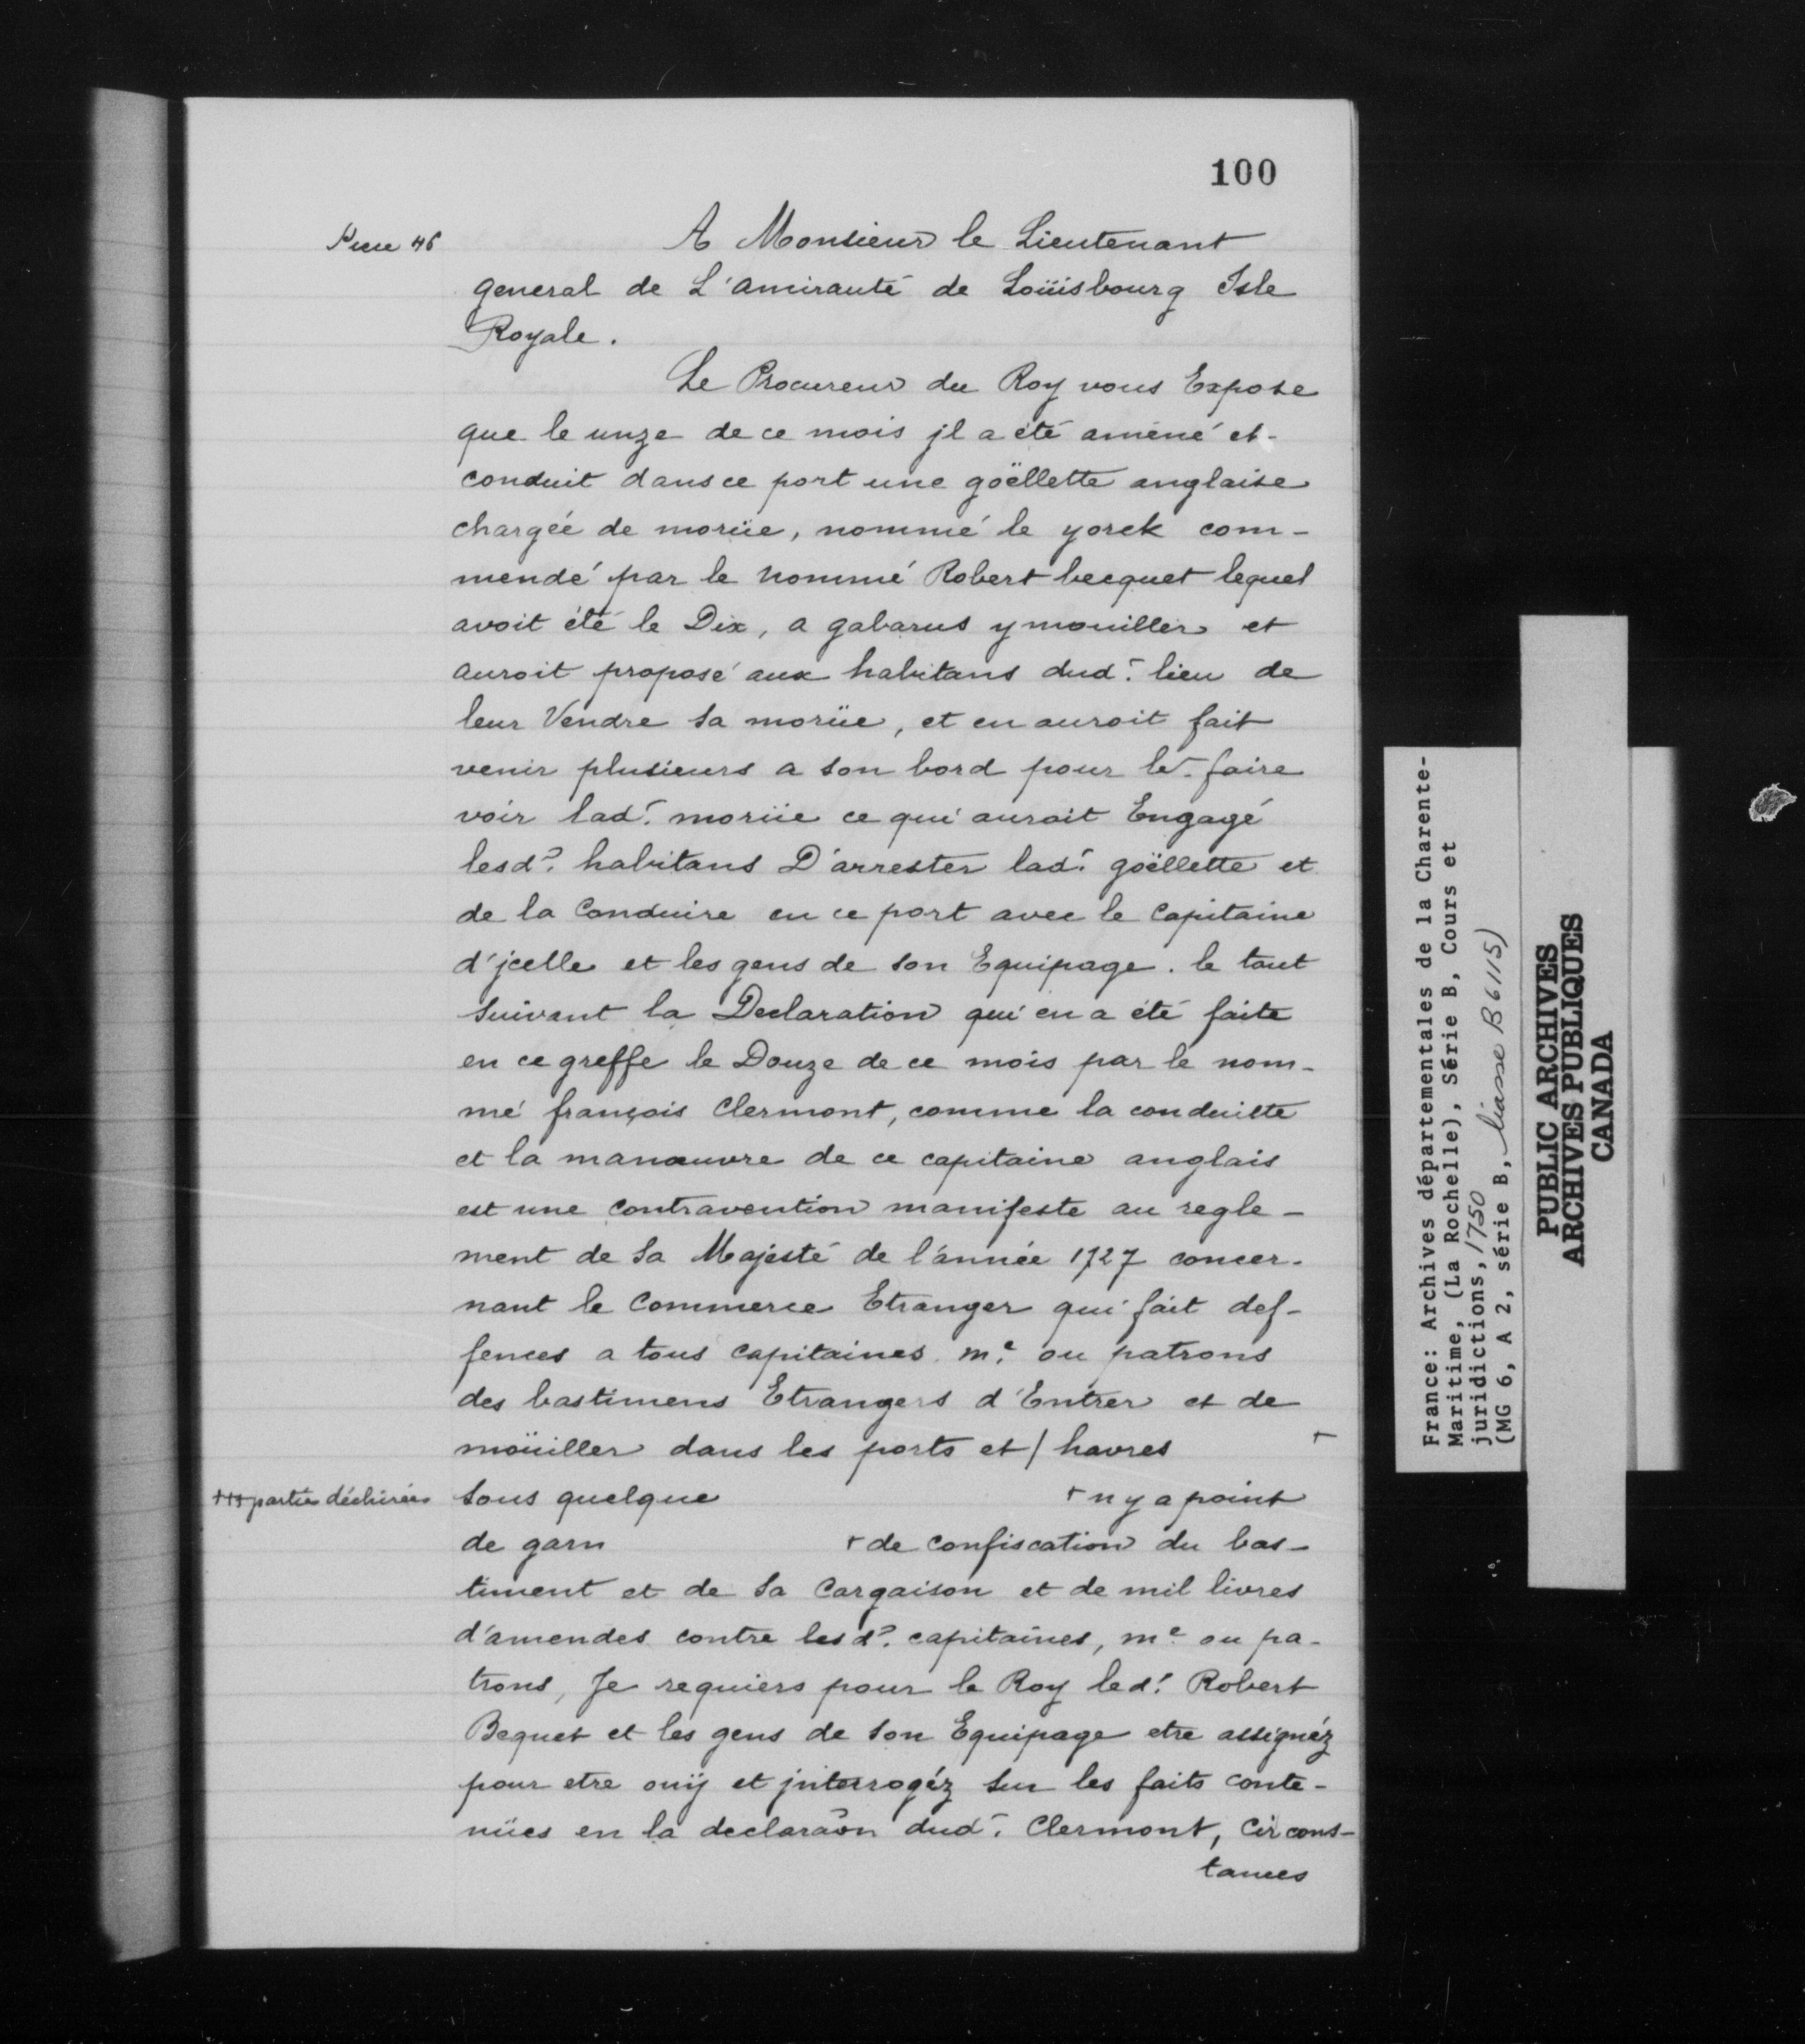 100
Piece 46
A Monsieur le Lieutenant
general de L'amirauté de Loüisbourg Isle
Royale.
Le Procureur du Roy vous Expose
que le unze de ce mois jl a été améné et-
conduit dans ce port une goëllette anglaise
chargée de morüe, nommé le yorek com-
mendé par le nommé Robert becquet lequel
avoit été le Dix, a gabarus y mouiller et
auroit proposé aux habitans dud.t lieu de
leur Vendre sa morüe, et en auroit fait
venir plusieurs a son bord pour le faire
voir lad.t morüe ce qui aurait Engagé
lesd.s habitans D'arrester lad.t goëllette et
de la Conduire en ce port avec le Capitaine
d'jcelle et les gens de son Equipage. le tout
suivant la Declaration qui en a été faite
en ce greffe le Douze de ce mois par le nom-
mé françois Clermont, comme la conduitte
et la manœuvre de ce capitaine anglais
est une contravention manifeste au regle-
ment de Sa Majesté de l'année 1727 concer-
nant le Commerce Etranger qui fait def-
fences a tous capitaines m.e ou patrons
des bastimens Etrangers d'Entrer et de
moüiller dans les ports et / havres +
+++ parties déchirées
sous quelque + n y a point
de garn + de confiscation du bas-
timent et de sa Cargaison et de mil livres
d'amendes contre lesd.s capitaines, m.e ou pa-
trons, Je requiers pour le Roy led.t Robert
Bequet et les gens de son Equipage etre assignéz
pour etre ouij et jnterrogéz sur les faits conte-
nües en la declaraõn dud.t Clermont, Circons-
tances
France: Archives départementales de la Charente-
Maritime, (La Rochelle), Série B, Cours et
juridictions, 1750
(MG 6, A 2, série B, liasse B 6115)
PUBLIC ARCHIVES
ARCHIVES PUBLIQUES
CANADA